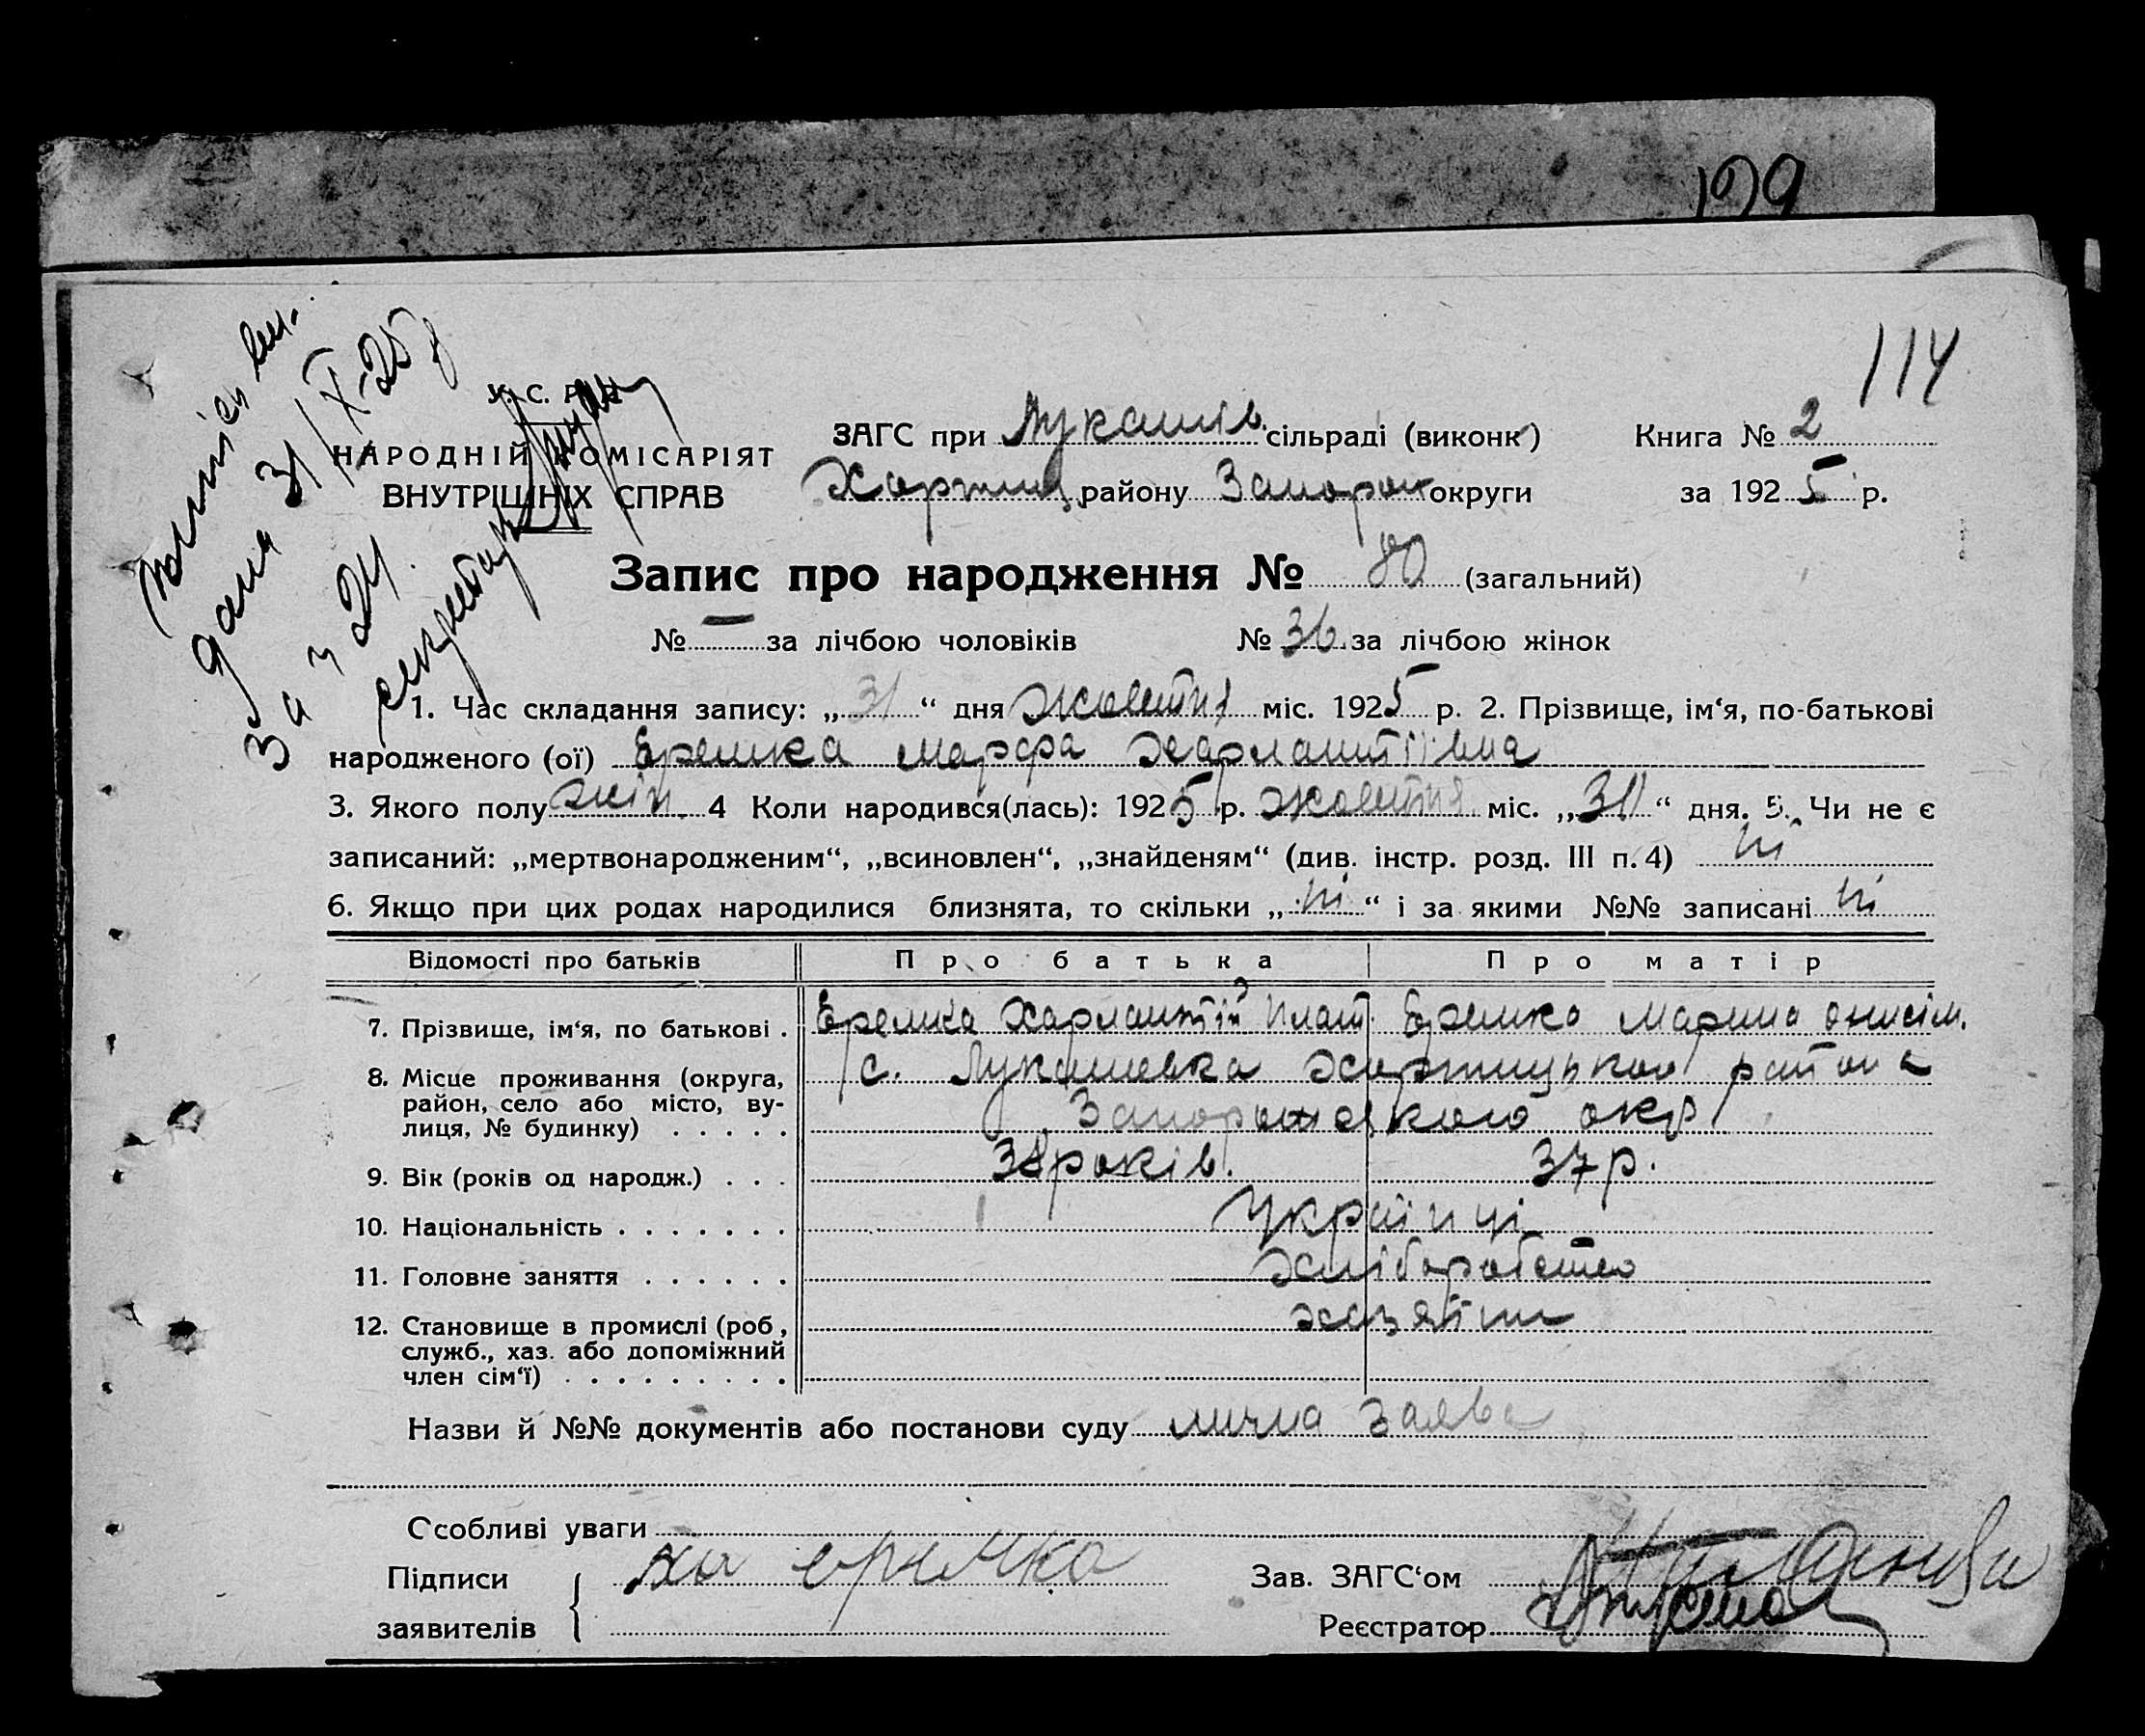 199
114
дана 31/X-25 р
за № 24
секретар
У. С. Р. Р.
НАРОДНІЙ КОМІСАРІЯТ
ВНУТРІШНІХ СПРАВ
ЗАГС при Лукашів. сільраді (виконк)
Хортиц. району Запорож округи
Книга № 2
за 1925 р.
Запис про народження № 80 (загальний)
№ — за лічбою чоловіків № 36 за лічбою жінок
1. Час складання запису: „31“ дня жовтня міс. 1925 р. 2. Прізвище, ім‘я, по-батькові
народженого (ої) Еремка Марфа Харлантіівна
3. Якого полу жін. 4 Коли народився(лась): 1925 р. жовтня міс. „30“ дня. 5. Чи не є
записаний: „мертвонародженим“, „всиновлен“, „знайденям“ (див. інстр. розд. III п. 4) ні
6. Якщо при цих родах народилися близнята, то скільки „ні“ і за якими №№ записані ні
Відомості про батьків Про батька Про матір
7. Прізвище, ім‘я, по батькові . Еремка Харлантій Плат. Еремко Марина Онисім.
8. Місце проживання (округа, с. Лукашевка Хортицького района
район, село або місто, ву-
лиця, № будинку) . . . . . Запорожського окр
9. Вік (років од народж.) . . . 38 років. 37 р.
10. Національність . . . . . . . Українці
11. Головне заняття . . . . . . Хліборобство
12. Становище в промислі (роб., хазяїни
служб., хаз. або допоміжний
член сім‘ї) . . . . . . . . . .
Назви й №№ документів або постанови суду лична заява
Особливі уваги
Підписи ха еремка Зав. ЗАГС‘ом
заявителів Реєстратор